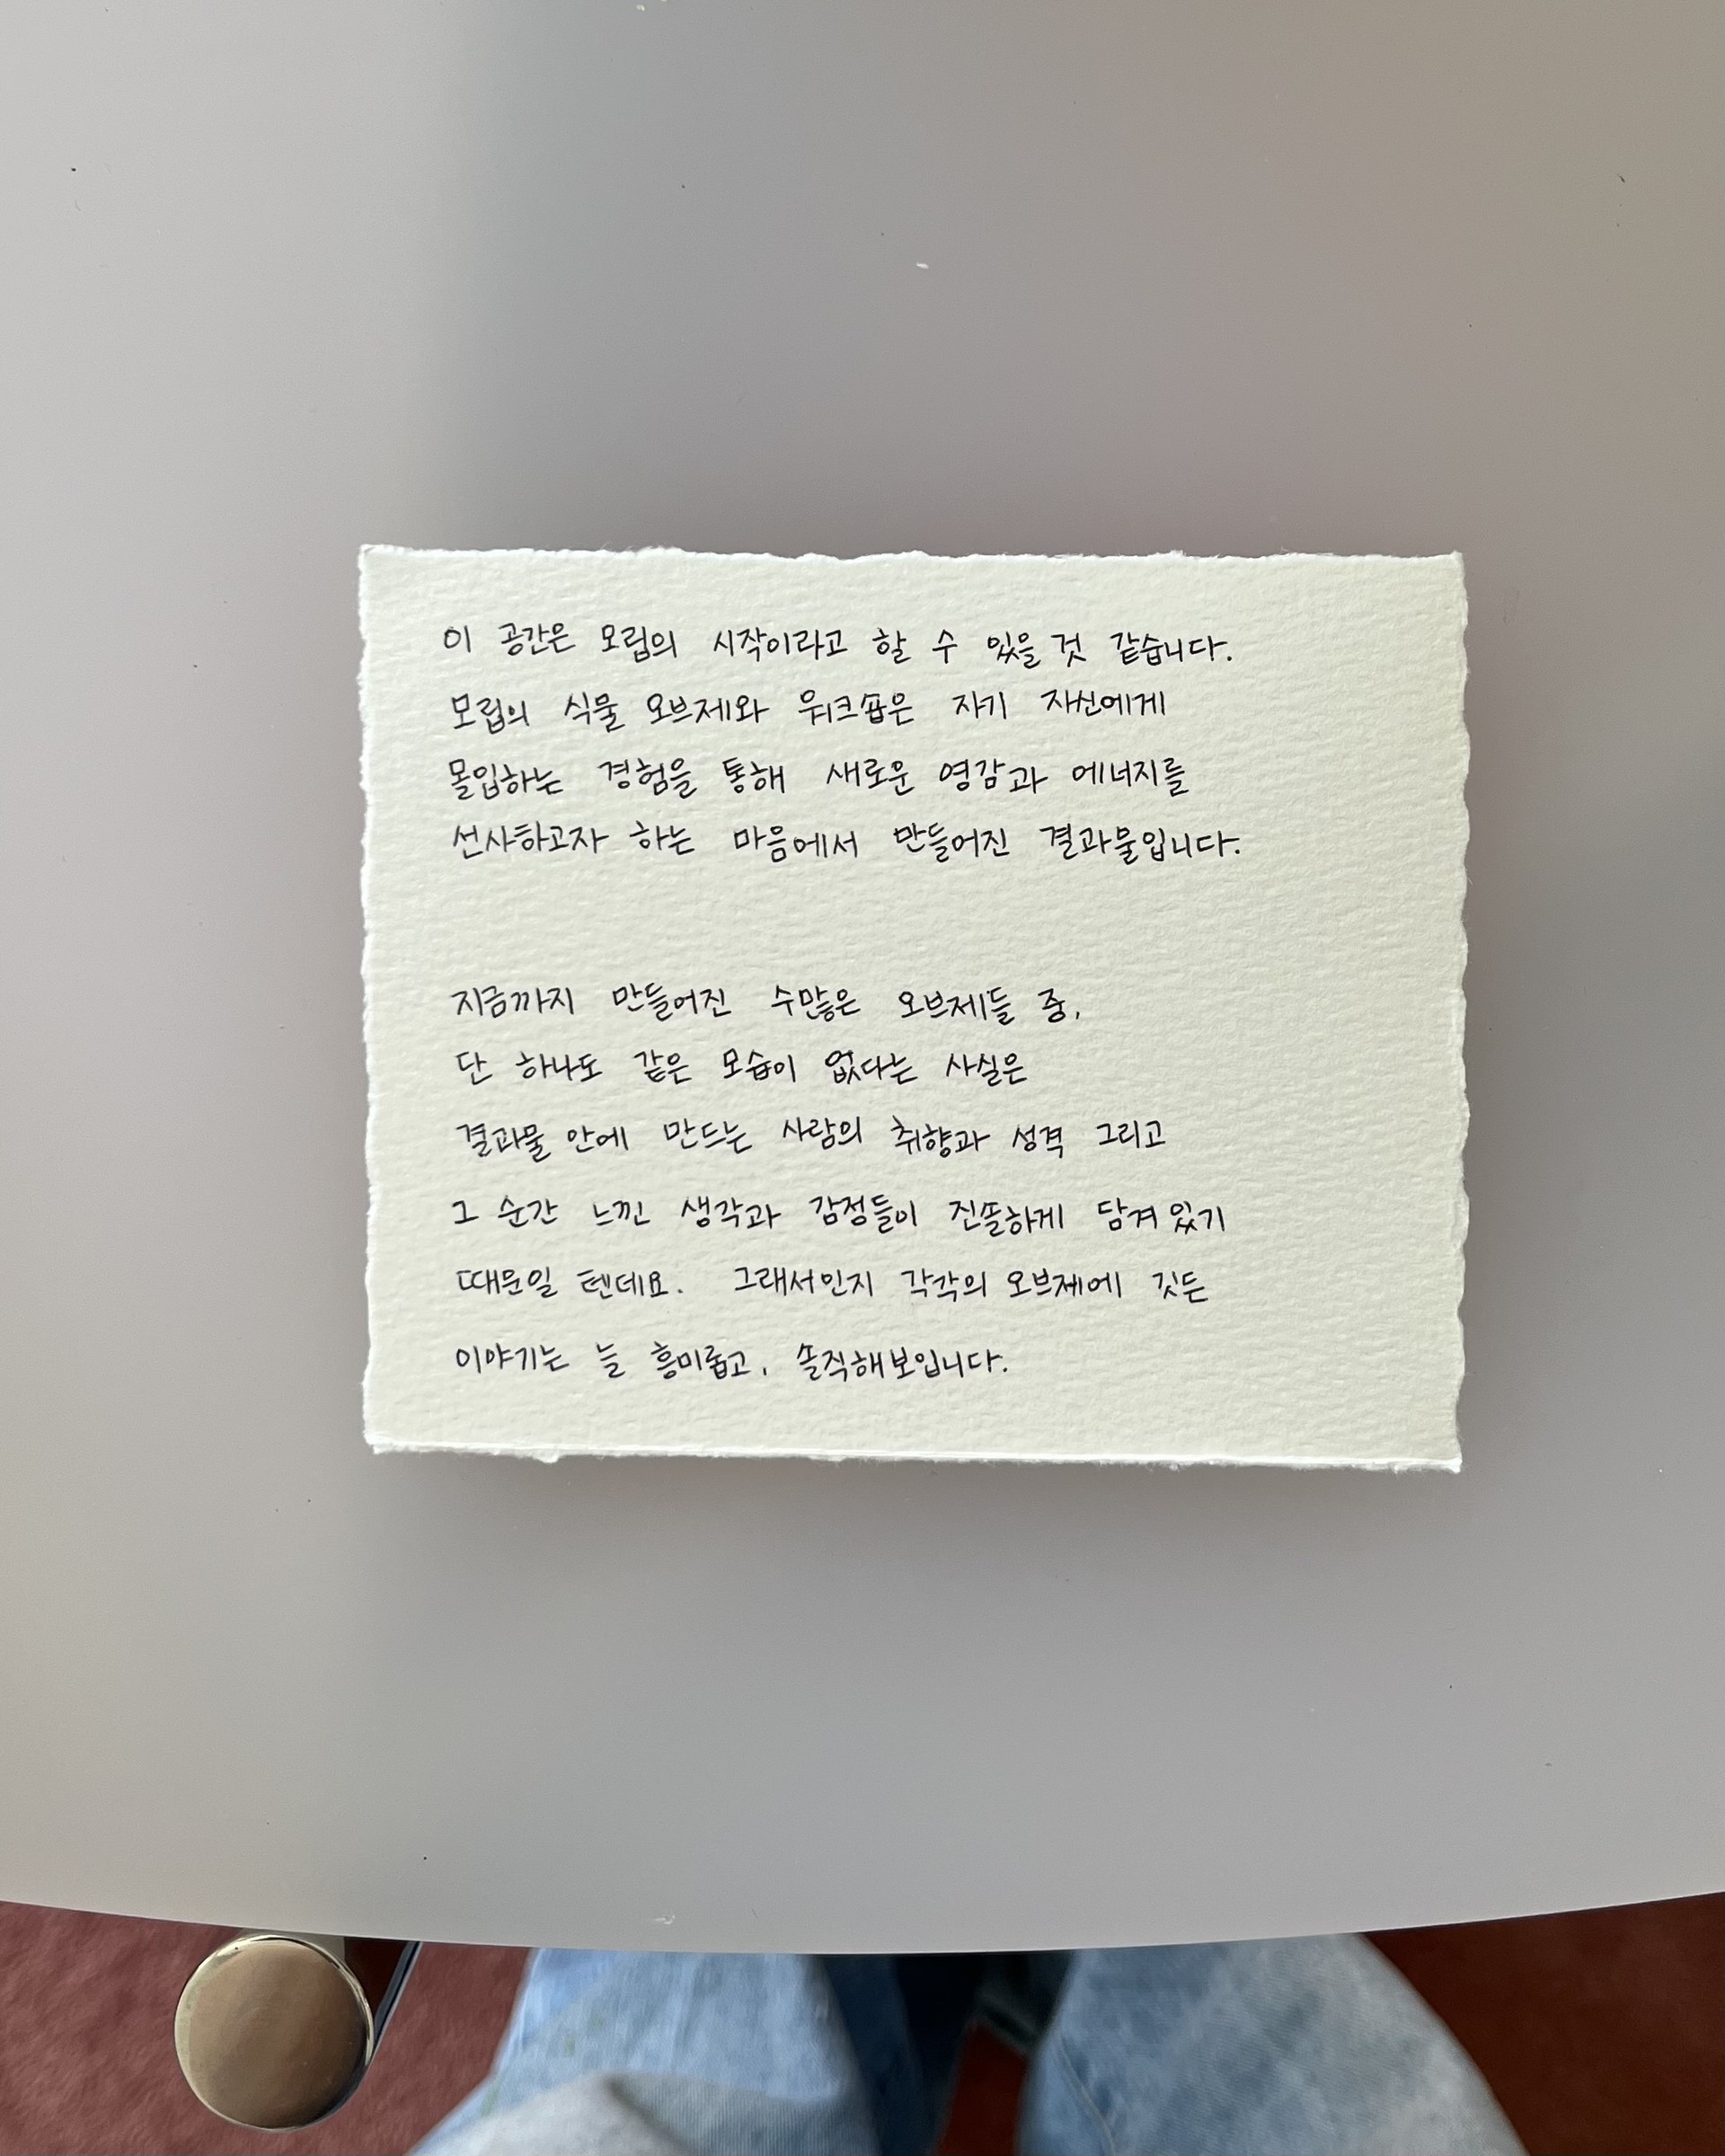 이 공간은 모립의 시작이라고 할 수 있을 것 같습니다.
모립의 식물 오브제와 워크숍은 자기 자신에게
몰입하는 경험을 통해 새로운 영감과 에너지를
선사하고자 하는 마음에서 만들어진 결과물입니다.
지금까지 만들어진 수많은 오브제들 중,
단 하나도 같은 모습이 없다는 사실은
결과물 안에 만드는 사람의 취향과 성격 그리고
그 순간 느낀 생각과 감정들이 진솔하게 담겨 있기
때문일 텐데요. 그래서인지 각각의 오브제에 깃든
이야기는 늘 흥미롭고, 솔직해보입니다.